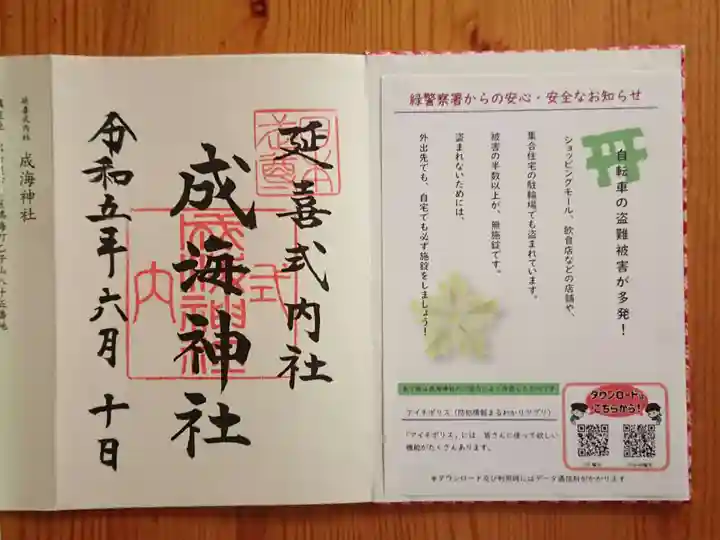 延喜式内社
成海神社
令和五年六月十日
延喜式内社
成海神社
緑警察署からの安心・安全なお知らせ
自転車の盗難被害が多発!
ショッピングモール、飲食店などの店舗や、
集合住宅の駐輪場でも盗まれています。
被害の半数以上が、無施錠です。
盗まれないためには、
外出先でも、自宅でも必ず施錠をしましょう!
ダウンロードは
こちらから!
アイチポリス(防犯情報まるわかりアプリ)
「アイチポリス」には 皆さんに使って欲しい
機能がたくさんあります。
※ダウンロード及び利用時にはデータ通信料がかかります